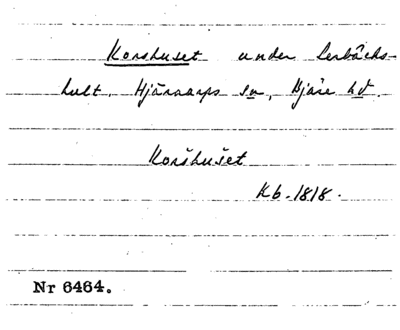 Korshuset under Lerbäcks-
hult, Hjärnarps sn, Bjäre hd.
Korshuset
Kb. 1818.
Nr 6464.